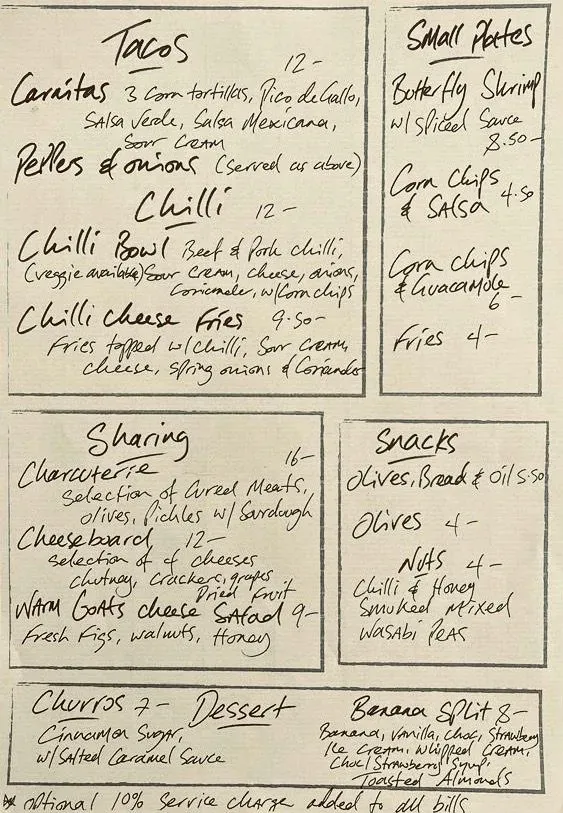 Tacos
12-
Carnitas 3 corn tortillas, Pico de Gallo,
Salsa Verde, Salsa Mexicana,
Sour Cream
Peppers & onions (Served as above)
Chilli 12-
Chilli Bowl Beef & Pork chilli,
(veggie available) Sour Cream, cheese, onions,
Coriander, w/ Corn chips
Chilli Cheese Fries 9.50-
Fries topped w/ chilli, Sour Cream,
cheese, Spring onions & Coriander
Small Plates
Butterfly Shrimp
w/ spiced Sauce
8.50-
Corn Chips
& SAlsa 4.50
Corn chips
& Guacamole
6-
Fries 4-
Sharing
16-
Charcuterie
Selection of Cured Meats,
olives, Pickles w/ Sourdough
Cheeseboard 12-
Selection of 4 cheeses
chutney, crackers, grapes
Dried Fruit
Warm Goats cheese Salad 9-
Fresh Figs, walnuts, Honey
Snacks
Olives, Bread & Oil 5.50
Olives 4-
Nuts 4-
Chilli & Honey
Smoked Mixed
Wasabi Peas
Churros 7-
Cinnamon Sugar,
w/ Salted Caramel Sauce
Dessert
Banana Split 8-
Banana, vanilla, choc, Strawberry
Ice Cream, whipped Cream,
Choc/Strawberry Syrup,
Toasted Almonds
* optional 10% Service charge added to all bills